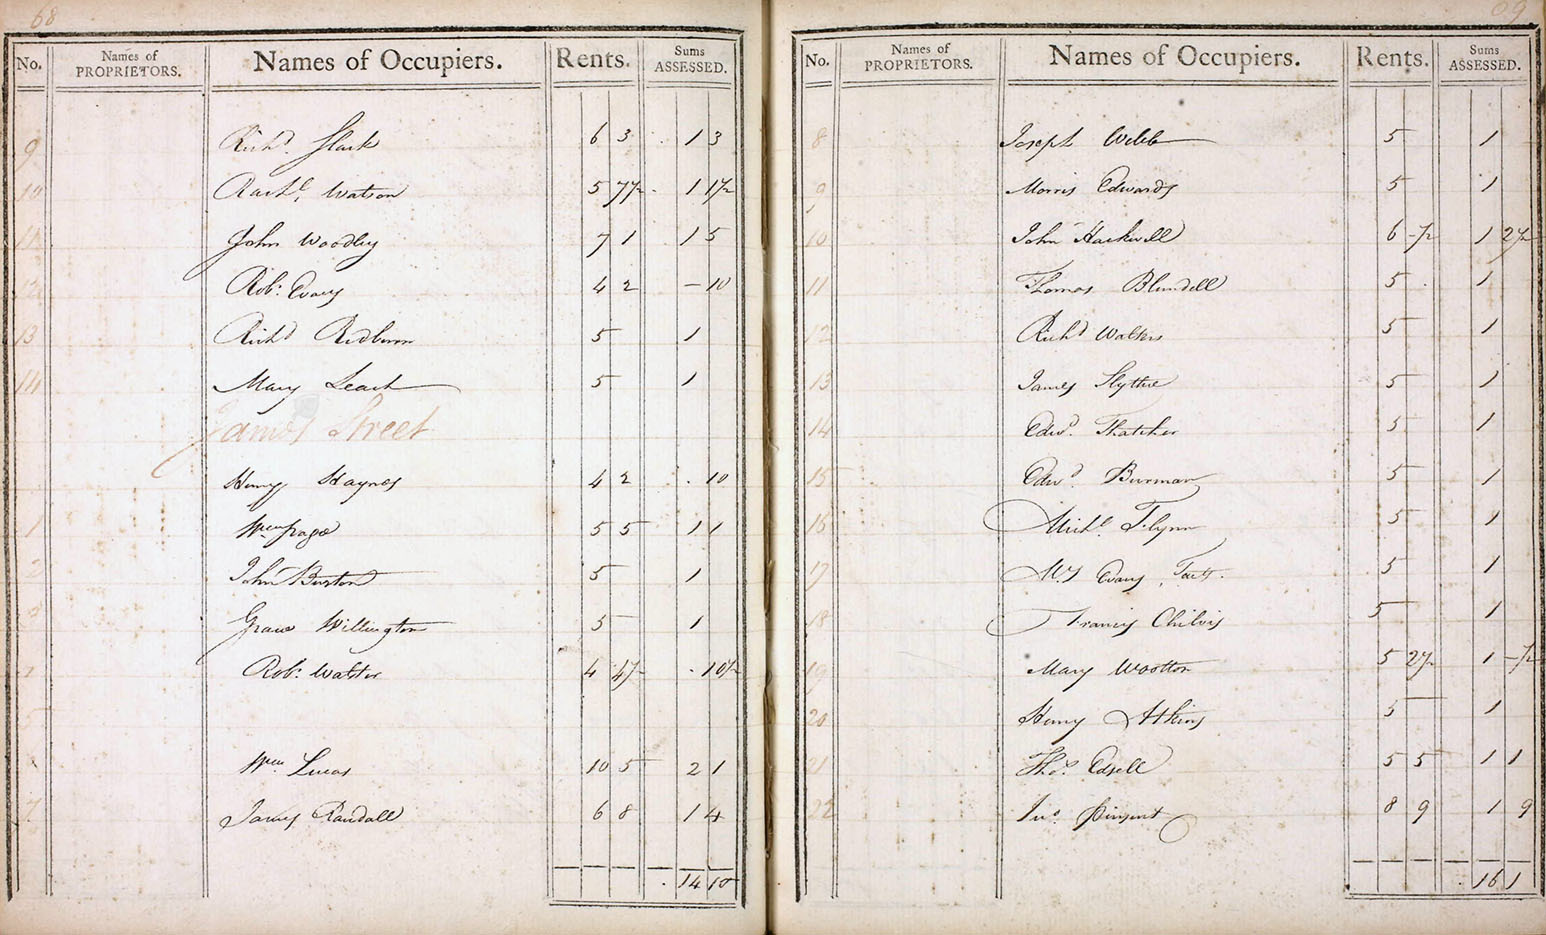 68
No. Names of PROPRIETORS. Names of Occupiers. Rents. Sums ASSESSED.
9 Richd. Slark 6 3 . 1 3
10 Rachl. Watson 5 7 7/2 . 1 1 7/2
11 John Woodley 7 1 1 5
12 Robt. Evans 4 2 – 10
13 Richd Redburn 5 1
14 Mary Leach 5 1
James Street
Henry Haynes 4 2 . 10
1 Wm Page 5 5 1 1
2 John Burton 5 1
3 Grace Willington 5 1
Robt. Walter 4 4 7/2 . 10 7/2
5
Wm Lucas 10 5 2 1
7 James Randall 6 8 1 4
. 14 10
69
No. Names of PROPRIETORS. Names of Occupiers. Rents. Sums ASSESSED.
8 Joseph Webb 5 1
9 Morris Edwards 5 1
10 John Hackwell 6 – 7/2 1 2 7/2
11 Thomas Blundell 5 . 1
12 Richd Walters 5 1
13 James 5 1
14 Edwd. Thatcher 5 1
15 Edwd. Burman 5 1
16 Michl. Flynn 5 1
17 Mrs Evans 5 1
18 Francis 5 1
19 Mary Wootton 5 2 7/2 1 – 7/2
20 Henry Atkins 5 1
21 Thos. Edsell 5 5 1 1
22 Jno. Pinzent 8 9 1 9
. 16 1